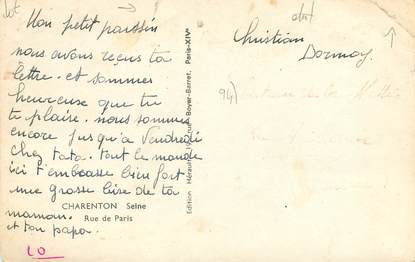 Mon petit poussin
nous avons reçus ta
lettre. et sommes
heureuse que tu
te plaise. nous sommes
encore jusqu'a Vendredi
chez tata. tout le monde
ici t'embrasse bien fort
une grosse bise de ta
maman.
et ton papa.
CHARENTON Seine
Rue de Paris
10
Edition Hérault, rue Boyer-Barret, Paris-XIVe
Christian
Dormoy.
94)